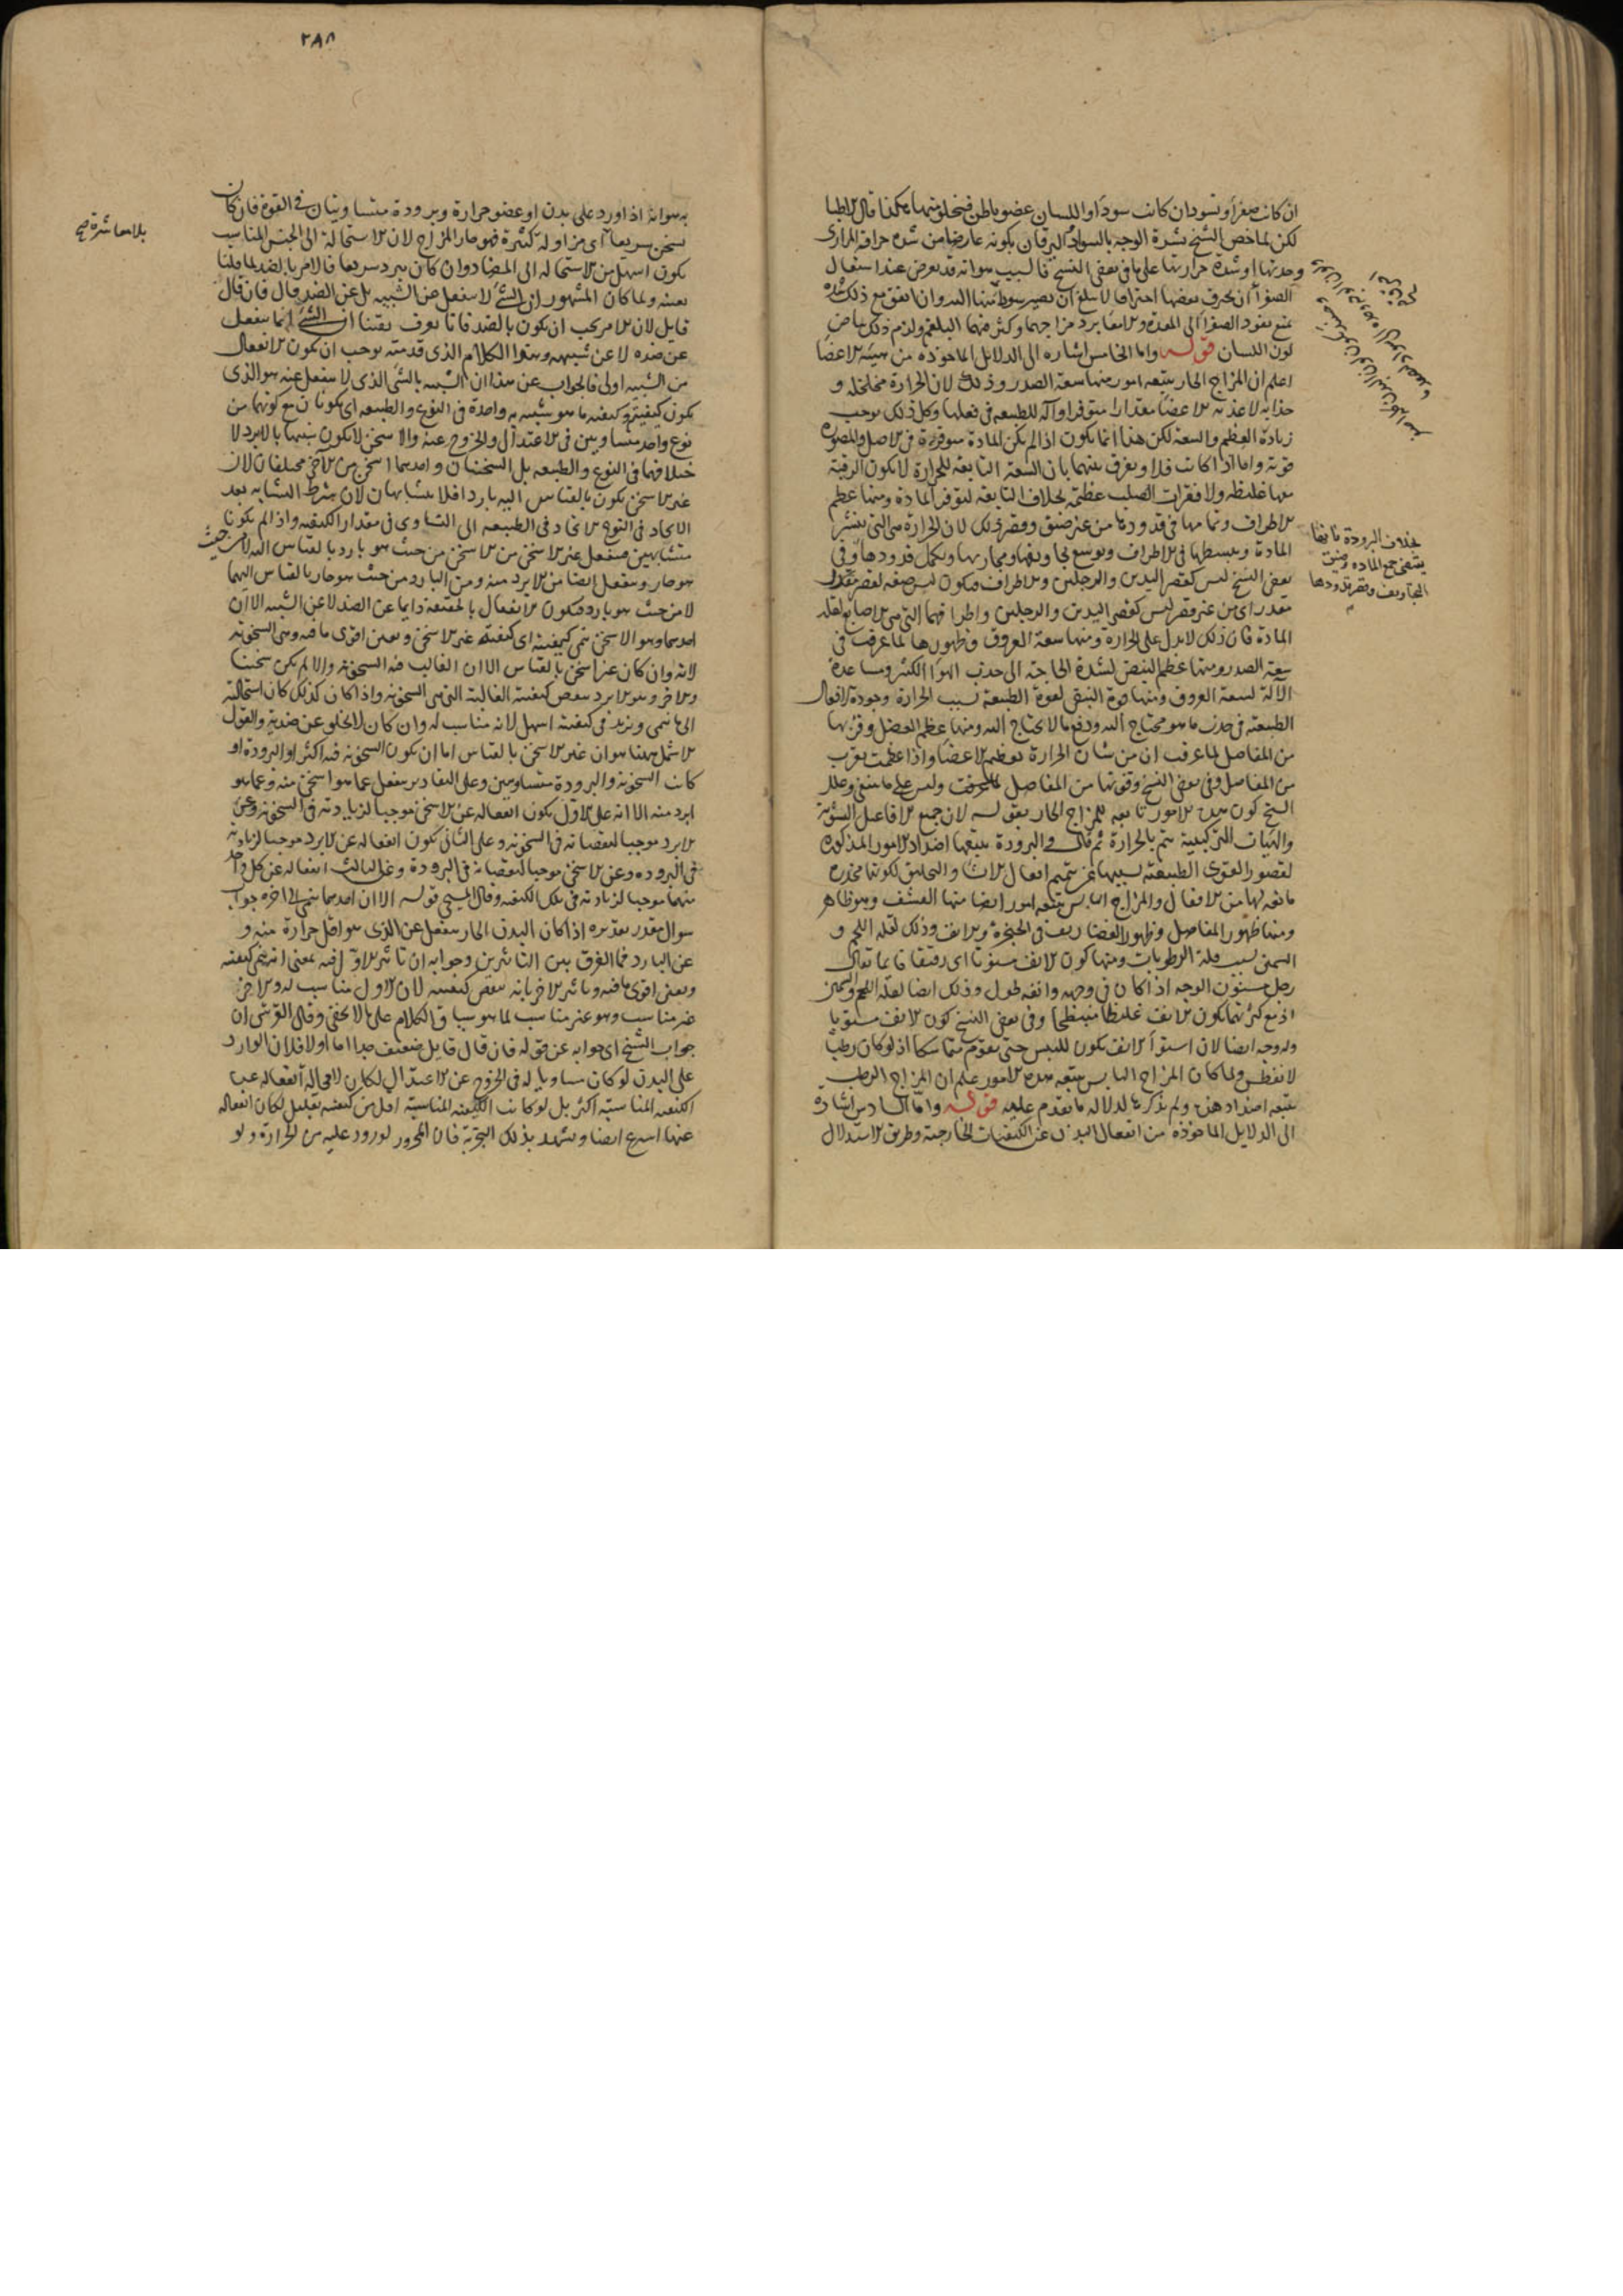 ان كانت صفرا وتسودان كانت سودا واللسان عضو باطن فيخلو منهما هكذا قال الاطبا
لكن لما خص الشيخ شدة الوجه بالسواد اليرقان بكونه عارضا من شده حرافة المرارى
وحدتها او شدة حرارتها على ما فى بعض النسخ فالسبب هو انه قد يعرض عند اشتعال
الصفرا ان يحرق بعضها احتراقا لا يبلغ ان يصير سوداء منها اليه وان اتفق مع ذلك شده
تمنع نفوذ الصفرا الى المعدة والامعا برد مزاجهما وكثر فيهما البلغم ولزم ذلك بياض
لون اللسان قوله واما الخامس اشاره الى الدلايل الماخوذه من هيئة الاعضا
اعلم ان المزاج الحار يتبعه امور منها سعة الصدر وذلك لان الحرارة مخلخله و
جذابه لاغذية الاعضا مقدارا متوفرا وآله للطبيعه فى فعلها وكل ذلك يوجب
زيادة العظم والسعة لكن هذا انما يكون اذا لم يكن المادة متوفرة فى الاصل والمصوره
قوية واما اذا كانت فلا ويفرق بينهما بان السعة التابعة للحرارة لا يكون الرقبة
معها غليظه ولا فقرات الصلب عظيمة بخلاف التابعة لتوفر المادة ومنها عظم
الاطراف وتمامها فى قدودها من غير ضيق وقصر وذلك لان الحرارة هى التى تنشر
المادة وتبسطها فى الاطراف وتوسع تجاويفها ومجاريها وتكمل قدودها وفى
بعض النسخ ليس كقصر اليدين والرجلين والاطراف فيكون ليس صفة لقصر مقدار
مقدر اى من غير قصر ليس كقصر اليدين والرجلين واطرافهما التى هى الاصابع لقلة
المادة فان ذلك لا يدل على الحرارة ومنها سعة العروق وظهورها لما عرفت فى
سعة الصدر ومنها عظم النبض لشدة الحاجة الى جذب الهوا الكثير ومساعدة
الآلة لسعة العروق ومنها قوة النبض لقوة الطبيعة بسبب الحرارة وجودة افعال
الطبيعة فى جذب ما هو محتاج اليه ودفع ما لا يحتاج اليه ومنها عظم العضل وقربها
من المفاصل لما عرفت ان من شان الحرارة تعظيم الاعضا واذا عظمت تقرب
من المفاصل وفى بعض النسخ وقوتها من المفاصل وليس على ما ينبغى وعلل
الشيخ كون هذه الامور تابعه للمزاج الحار بقوله لان جميع الافاعيل النشوية
والهيات التركيبية يتم بالحرارة ثم قال والبرودة يتبعها اضداد الامور المذكوره
لقصور القوى الطبيعية بسببها عن تتميم افعال الانشا والتخليق لكونها مخدره
مانعه لها من الافعال والمزاج اليابس يتبعه امور ايضا منها القشف وهو ظاهر
ومنها ظهور المفاصل وظهور الغضاريف فى الحنجرة والانف وذلك لقلة اللحم و
السمن بسبب قلة الرطوبات ومنها كون الانف مسنونا اى رقيقا فانما يقال
رجل مسنون الوجه اذا كان فى وجهه وانفه طول وذلك ايضا لقلة اللحم والسمن
اذ مع كثرتهما يكون الانف غليظا منبسطا وفى بعض النسخ كون الانف مستويا
وله وجه ايضا لان استوا الانف يكون لليبس حتى يقوم متماسكا اذ لو كان رطبا
لانفطس ولما كان المزاج اليابس يتبعه هذه الامور علم ان المزاج الرطب
يتبعه اضداد هذه ولم يذكرها لدلالة ما تقدم عليه قوله واما السادس اشارة
الى الدلايل الماخوذه من انفعال البدن عن الكيفيات الخارجية وطريق الاستدلال
بخلاف البرودة فانها
يقتضى جمع الماده وضيق
التجاويف وقصر قدودها
٢٨٨
به هو انه اذا ورد على بدن او عضو حرارة وبرودة متساويتان فى القوة فان كان
يسخن سريعا اى من اوله كثيرة فهو حار المزاج لان الاستحالة الى الجنس المناسب
يكون اسهل من الاستحاله الى المضاد وان كان يبرد سريعا فالامر بالضد لما قلنا
بعينه ولما كان المشهور ان الشئ لا ينفعل عن الشبيه بل عن الضد قال فان قال
قايل لان الامر يجب ان يكون بالضد فانا نعرف يقينا ان الشئ انما ينفعل
عن ضده لا عن شبيهه وهذا الكلام الذى قدمته يوجب ان يكون الانفعال
من الشبيه اولى فالجواب عن هذا ان الشبيه بالشئ الذى لا ينفعل عنه هو الذى
يكون كيفيته وكيفية ما هو شبيه به واحدة فى النوع والطبيعه اى يكونان مع كونهما من
نوع واحد متساويين فى الاعتدال والخروج عنه والاسخن لا يكون شبيها بالابرد لا
ختلافهما فى النوع والطبيعه بل السخنان واحدهما اسخن من الآخر مختلفان لان
غير الاسخن يكون بالقياس اليه باردا فلا يتشابهان لان شرط التشابه بعد
الاتحاد فى النوع الاتحاد فى الطبيعه الى التساوى فى مقدار الكيفية واذا لم يكونا
متشابهين فينفعل غير الاسخن من الاسخن من حيث هو بارد بالقياس اليه لا من حيث
هو حار وينفعل ايضا من الابرد منه ومن البارد من حيث هو حار بالقياس اليهما
لا من حيث هو بارد فيكون الانفعال بالحقيقة دايما عن الضد لا عن الشبيه الا ان
احدهما وهو الاسخن ينمى كيفيته اى كيفية غير الاسخن ويعين اقوى ما فيه وهى السخونة
لانه وان كان غير اسخن بالقياس الا ان الغالب فيه السخونة والا لم يكن سخينا
والآخر وهو الابرد ينقص كيفيته الغالبة التى هى السخونة واذا كان كذلك كان استحالته
الى ما ينمى ويزيد فى كيفيته اسهل لانه مناسب له وان كان لا يخلو عن ضدية والقول
الاشمل ههنا هو ان غير الاسخن بالقياس اما ان يكون السخونة فيه اكثر او البرودة او
كانت السخونة والبرودة متساويتين وعلى التقادير ينفعل عما هو اسخن منه وعما هو
ابرد منه الا انه على الاول يكون انفعاله عن الاسخن موجبا لزيادته فى السخونة وعن
الابرد موجبا لنقصانه فى السخونة وعلى الثانى يكون انفعاله عن الابرد موجبا لزيادته
فى البروده وعن الاسخن موجبا لنقصانه فى البرودة وعلى الثالث انفعاله عن كل واحد
منهما موجبا لزيادته فى تلك الكيفية وقال المسيحى قوله الا ان احدهما ينمى الى آخره جواب
سوال مقدر تقديره اذا كان البدن الحار ينفعل عن الذى هو اقل حرارة منه و
عن البارد فما الفرق بين التاثيرين وجوابه ان تاثير الاول فيه بمعنى انه ينمى كيفيته
ويعين اقوى ما فيه وتاثير الآخر بانه ينقص كيفيته لان الاول مناسب له والاخر
غير مناسب وهو غير مناسب لما هو سياق الكلام على ما لا يخفى وقال القرشى ان
جواب الشيخ اى جوابه عن قوله فان قال قايل ضعيف جدا اما اولا فلان الوارد
على البدن لو كان مساويا له فى الخروج عن الاعتدال لكان لا محالة انفعاله عن
الكيفية المناسبة اكثر بل لو كانت الكيفية المناسبة اقل من كيفيته بقليل لكان انفعاله
عنها اسرع ايضا ويشهد بذلك التجربة فان المحرور لو ورد عليه من الحرارة ولو